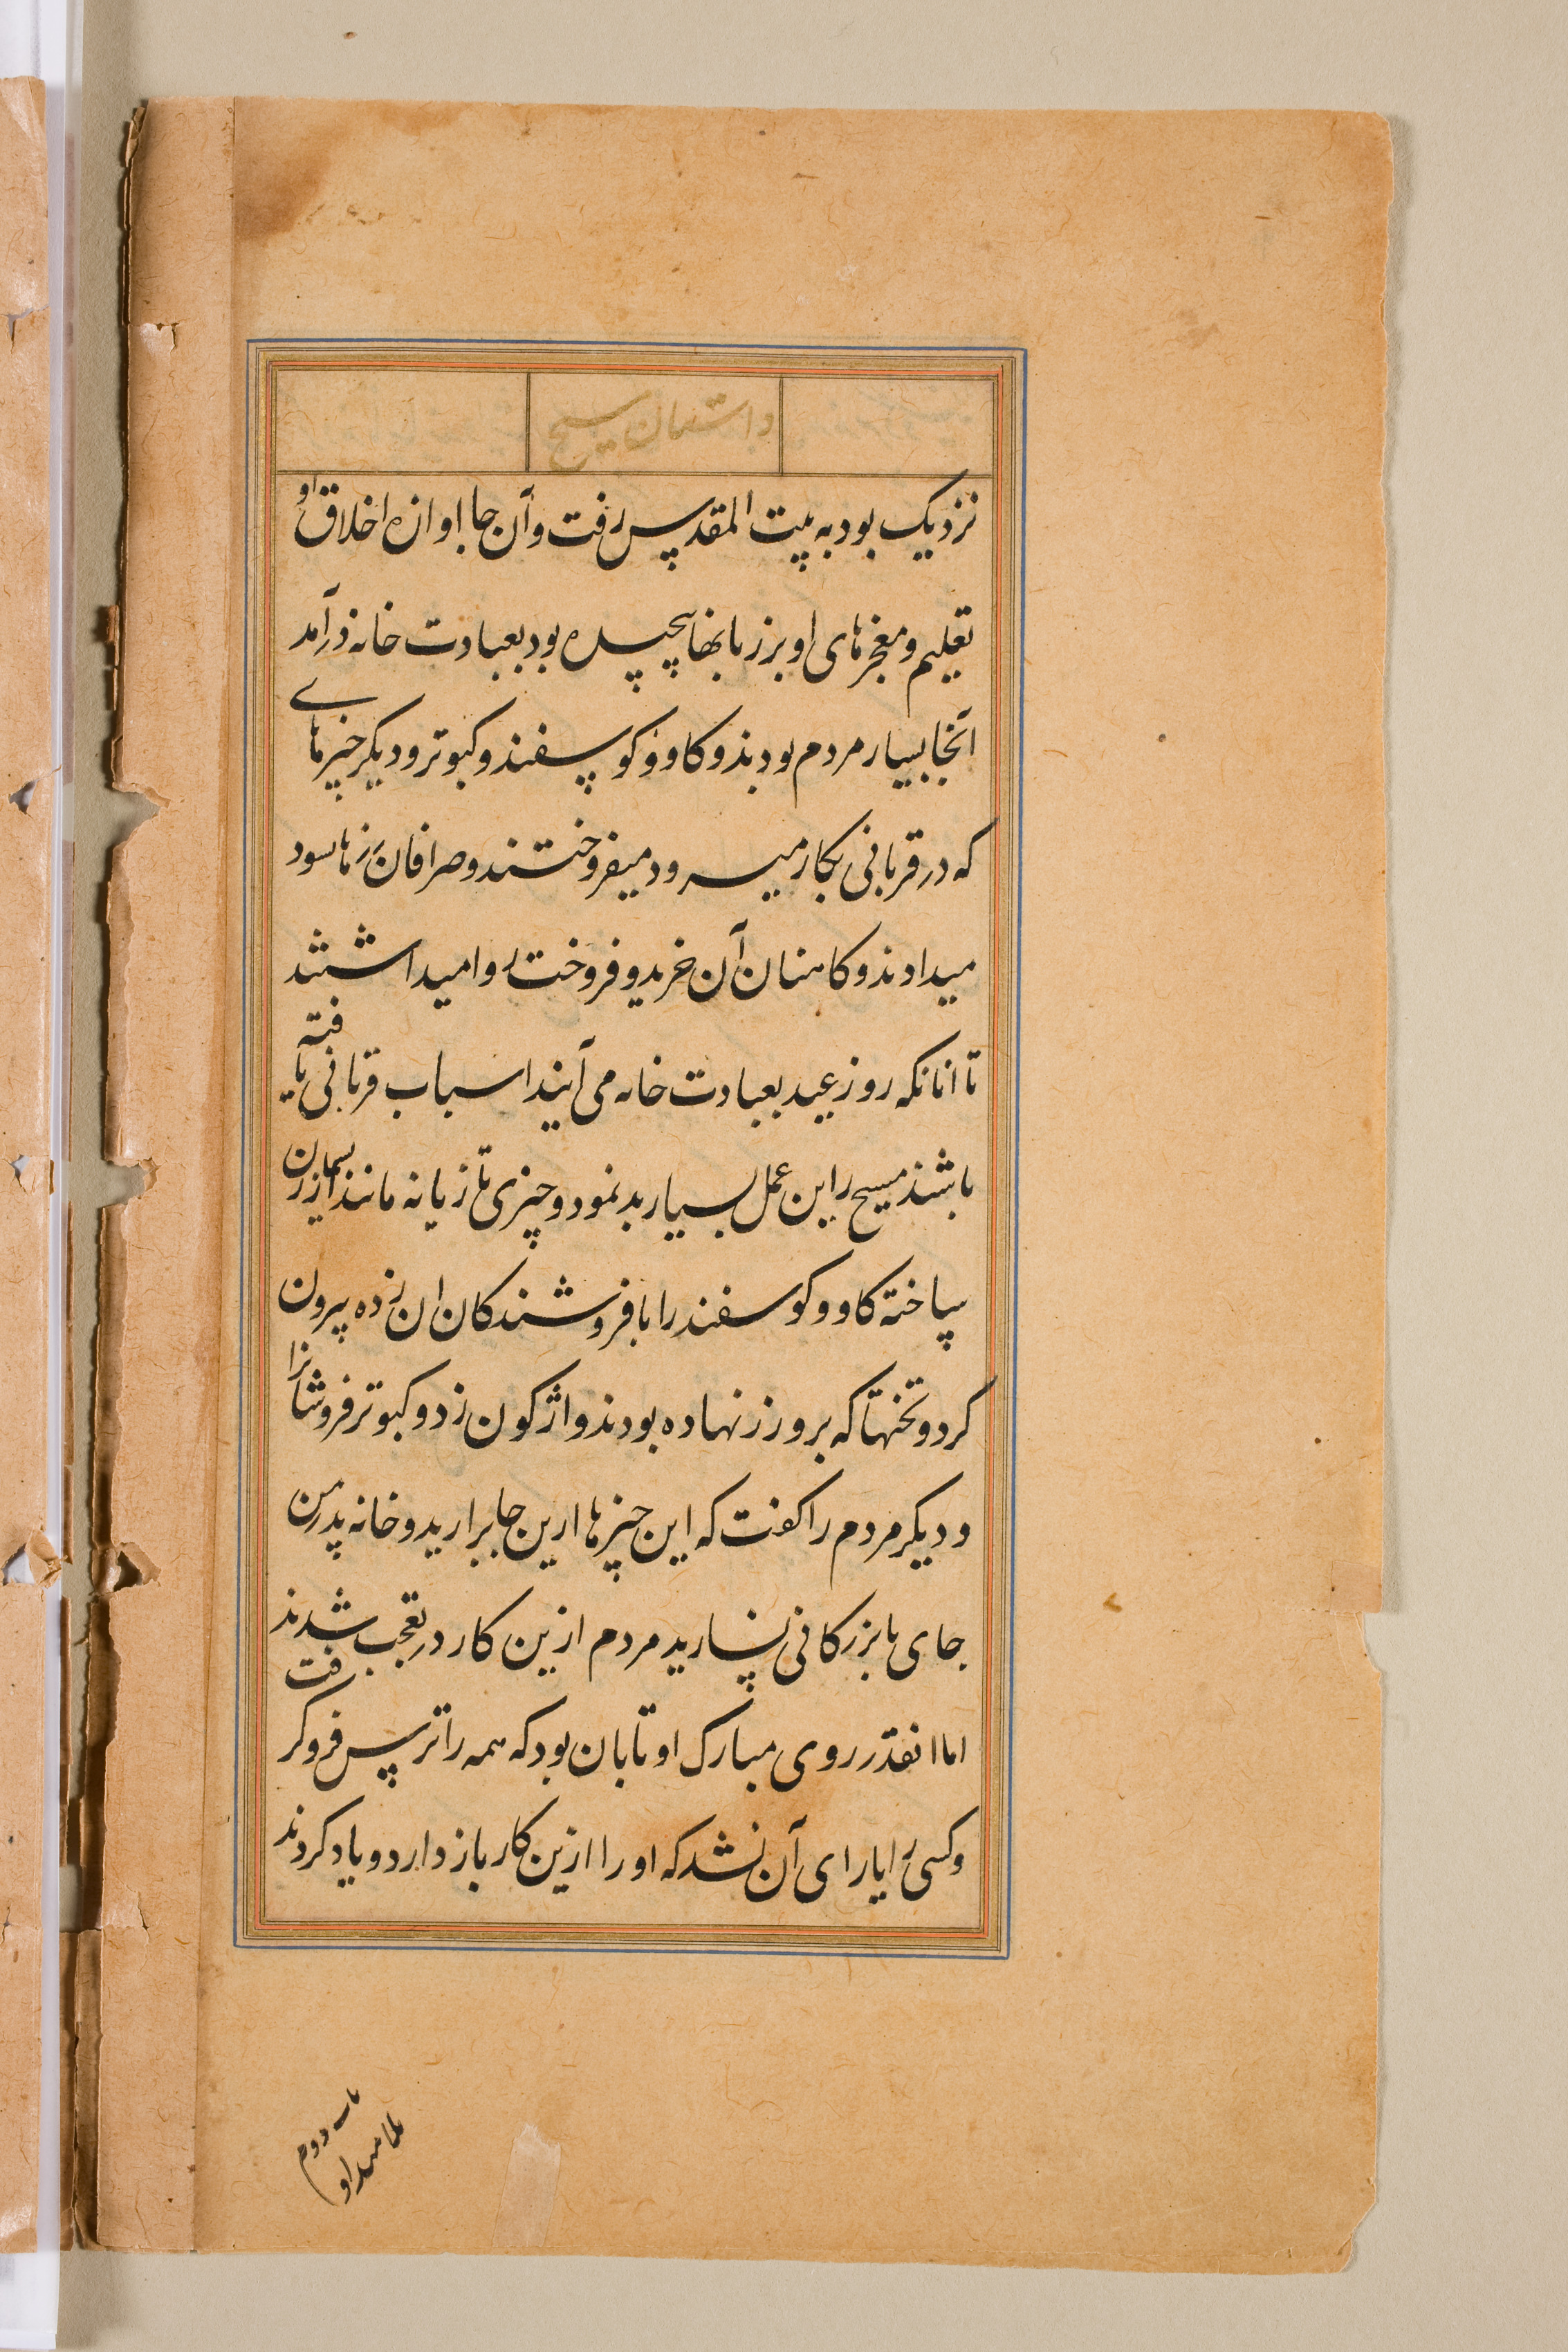 داستان مسیح
نزدیک بود به بیت المقدس رفت و آن جا اوازه اخلاق او
تعلیم و معجزهای او بر زبانها چسپیده بود بعبادت خانه درآمد
آنجا بسیار مردم بودند و کاو و کوسفند و کبوتر و دیکر چیزهای
که در قربانی بکار میرود میفروختند و صرافان زرها سود
میدادند و کاهنان آن خرید و فروخت روا میداشتند
تا انانکه روز عید بعبادت خانه می آیند اسباب قربانی یافته
باشند مسیح را این عمل بسیار بد نمود و چیزی تازیانه مانند از ریسمان
ساخته کاو و کوسفند را با فروشندکان ان زده بیرون
کرد و تختها که برو زر نهاده بودند واژکون زد و کبوتر فروشانرا
و دیکر مردم را کفت که این چیزها ازین جا برارید و خانه پدر من
جای بازرکانی نسازید مردم ازین کار در تعجب شدند
اما انقدر روی مبارک او تابان بود که همه را ترس فروکرفت
و کسی را یارای آن نشد که او را ازین کار باز دارد و یاد کردند
باب دوم